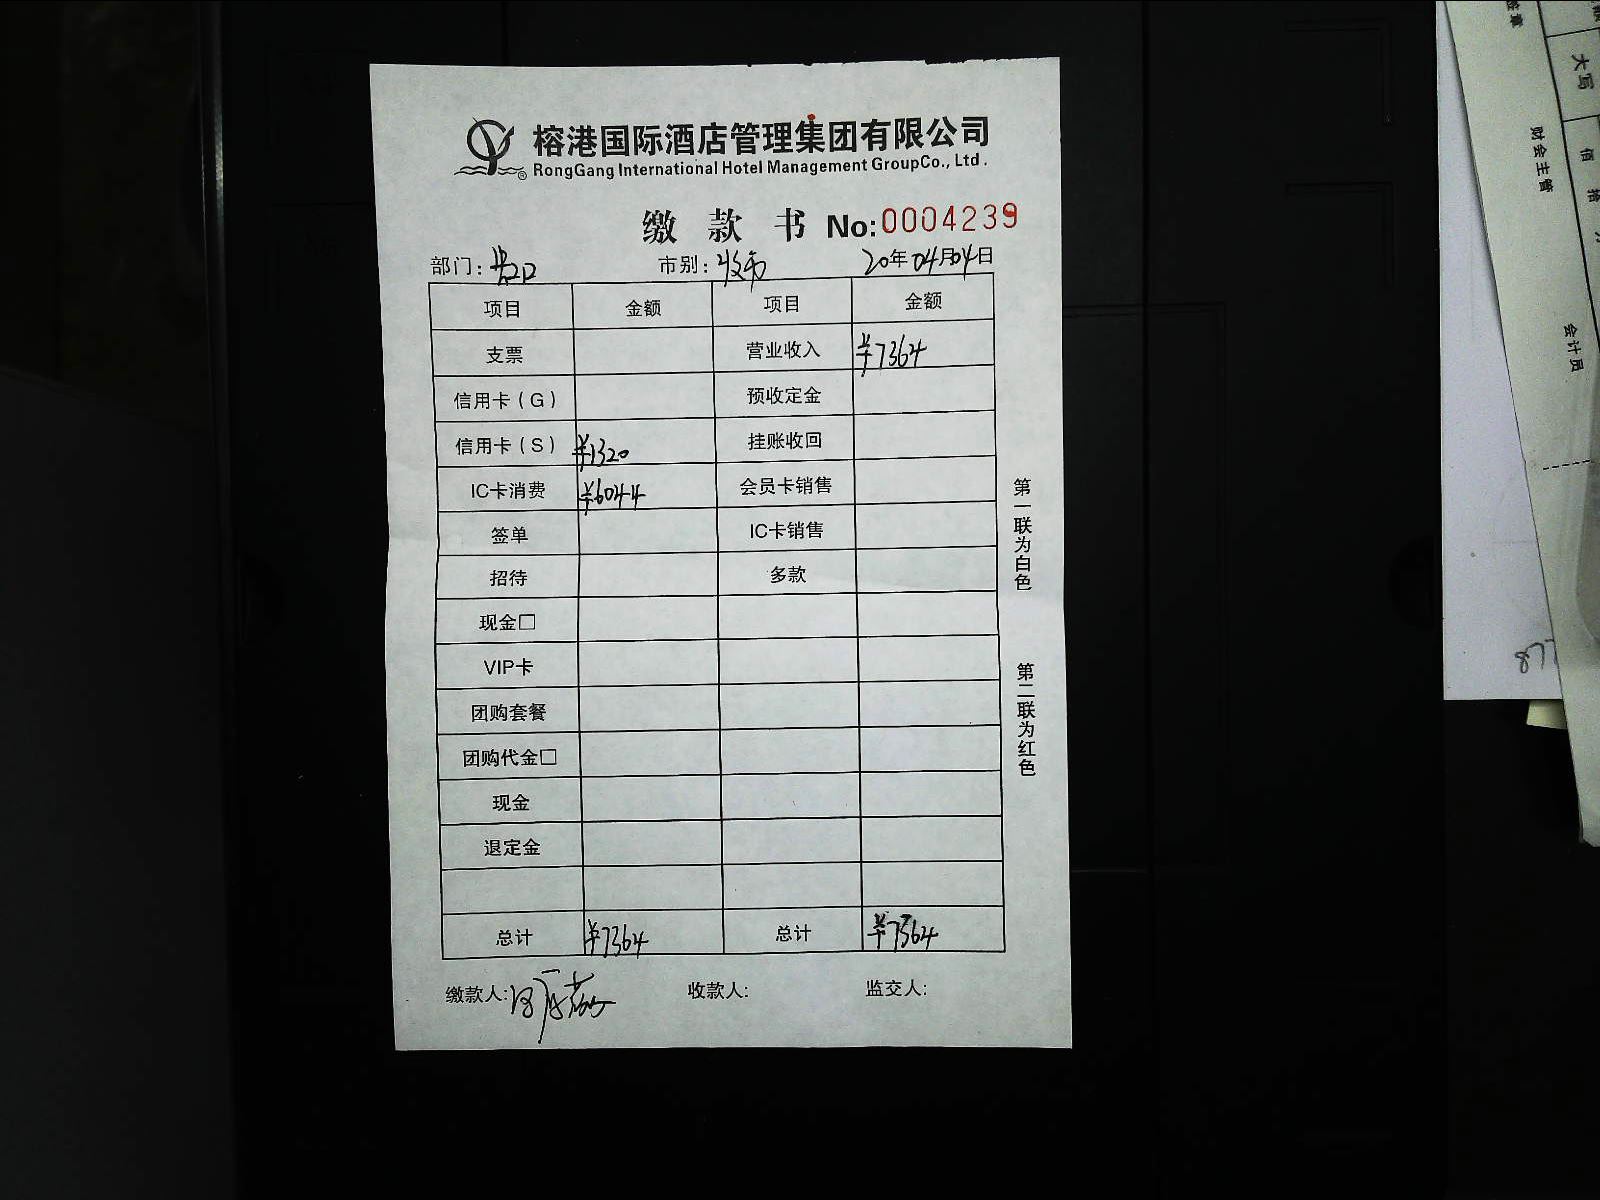 榕港国际酒店管理集团有限公司
RongGang International Hotel Management GroupCo., Ltd.
缴款书 No:0004239
部门: 市别: 20年04月04日
项目 金额 项目 金额
支票 营业收入 ¥7364
信用卡(G) 预收定金
信用卡(S) ¥1320 挂账收回
IC卡消费 ¥6044 会员卡销售
签单 IC卡销售
招待 多款
现金□
VIP卡
团购套餐
团购代金□
现金
退定金
总计 ¥7364 总计 ¥7364
缴款人: 收款人: 监交人:
第一联为白色
第二联为红色
签章
大写
佰 拾
财会主管
会计员